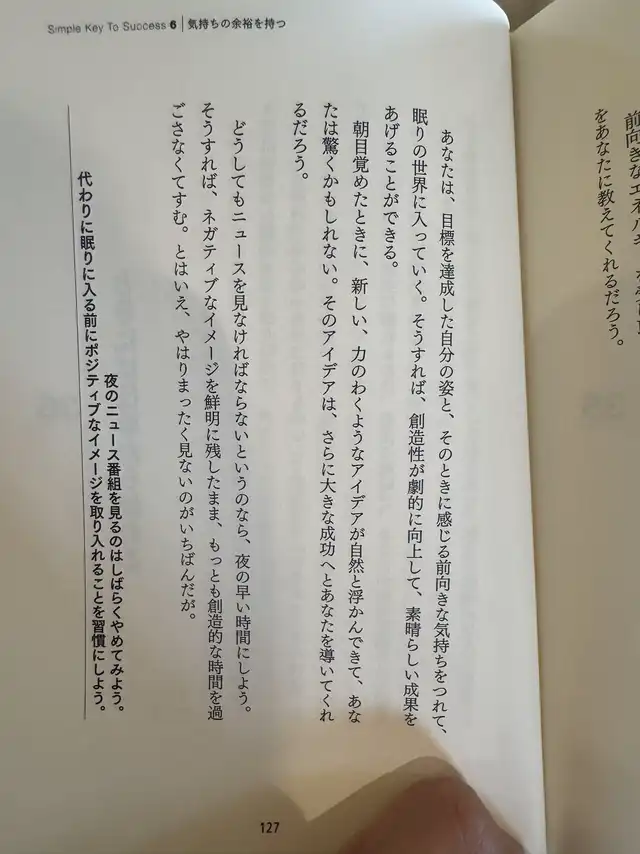 Simple Key To Success 6 | 気持ちの余裕を持つ
をあなたに教えてくれるだろう。
あなたは、目標を達成した自分の姿と、そのときに感じる前向きな気持ちをつれて、
眠りの世界に入っていく。そうすれば、創造性が劇的に向上して、素晴らしい成果を
あげることができる。
朝目覚めたときに、新しい、力のわくようなアイデアが自然と浮かんできて、あな
たは驚くかもしれない。そのアイデアは、さらに大きな成功へとあなたを導いてくれ
るだろう。
どうしてもニュースを見なければならないというのなら、夜の早い時間にしよう。
そうすれば、ネガティブなイメージを鮮明に残したまま、もっとも創造的な時間を過
ごさなくてすむ。とはいえ、やはりまったく見ないのがいちばんだが。
夜のニュース番組を見るのはしばらくやめてみよう。
代わりに眠りに入る前にポジティブなイメージを取り入れることを習慣にしよう。
127